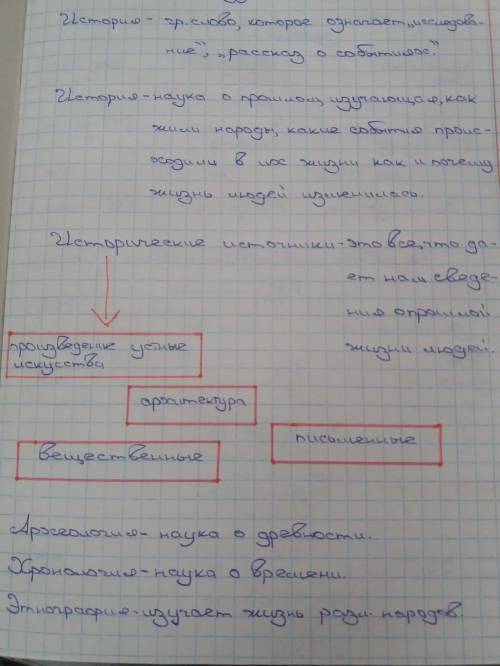 История - гр. слово, которое означает „исследова-
ние", „рассказ о событиях".
История - наука о прошлом, изучающая, как
жили народы, какие события проис-
ходили в их жизни как и почему
жизнь людей изменилась.
Исторические источники - это все, что да-
ет нам сведе-
ния о прошлой
жизни людей.
произведение устные
искусства
архитектура
письменные
вещественные
Археология - наука о древности.
Хронология - наука о времени.
Этнография - изучает жизнь разл. народов.